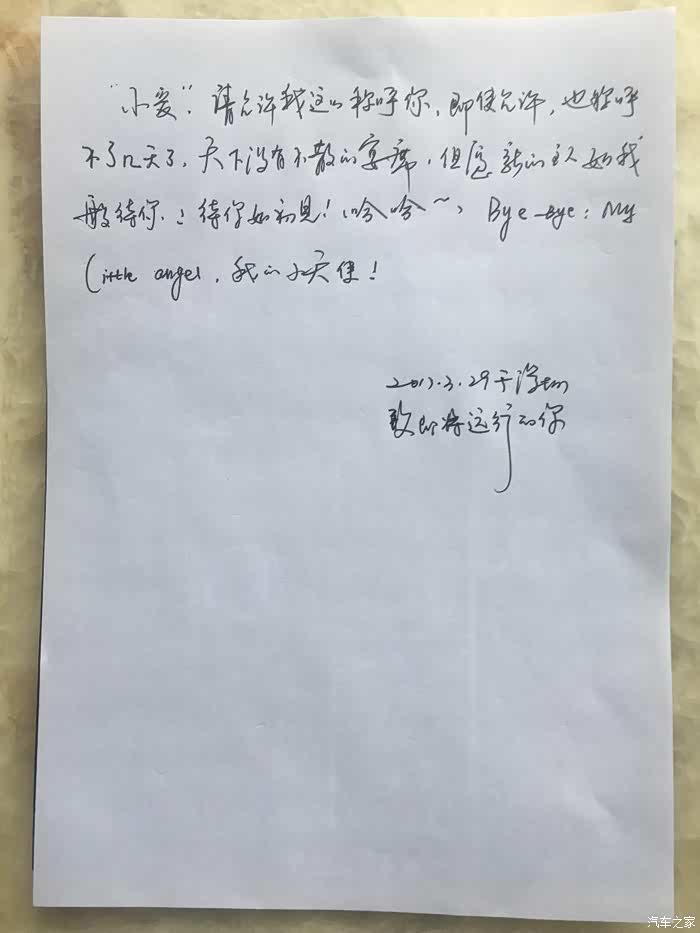 “小爱”，请允许我这么称呼你，即使允许，也称呼
不了几天了，天下没有不散的宴席，但愿新的主人如我
般待你，待你如初见！哈哈～，Bye-bye：My
Little angel，我的小天使！
2017.3.29于深圳
致即将远行的你
汽车之家